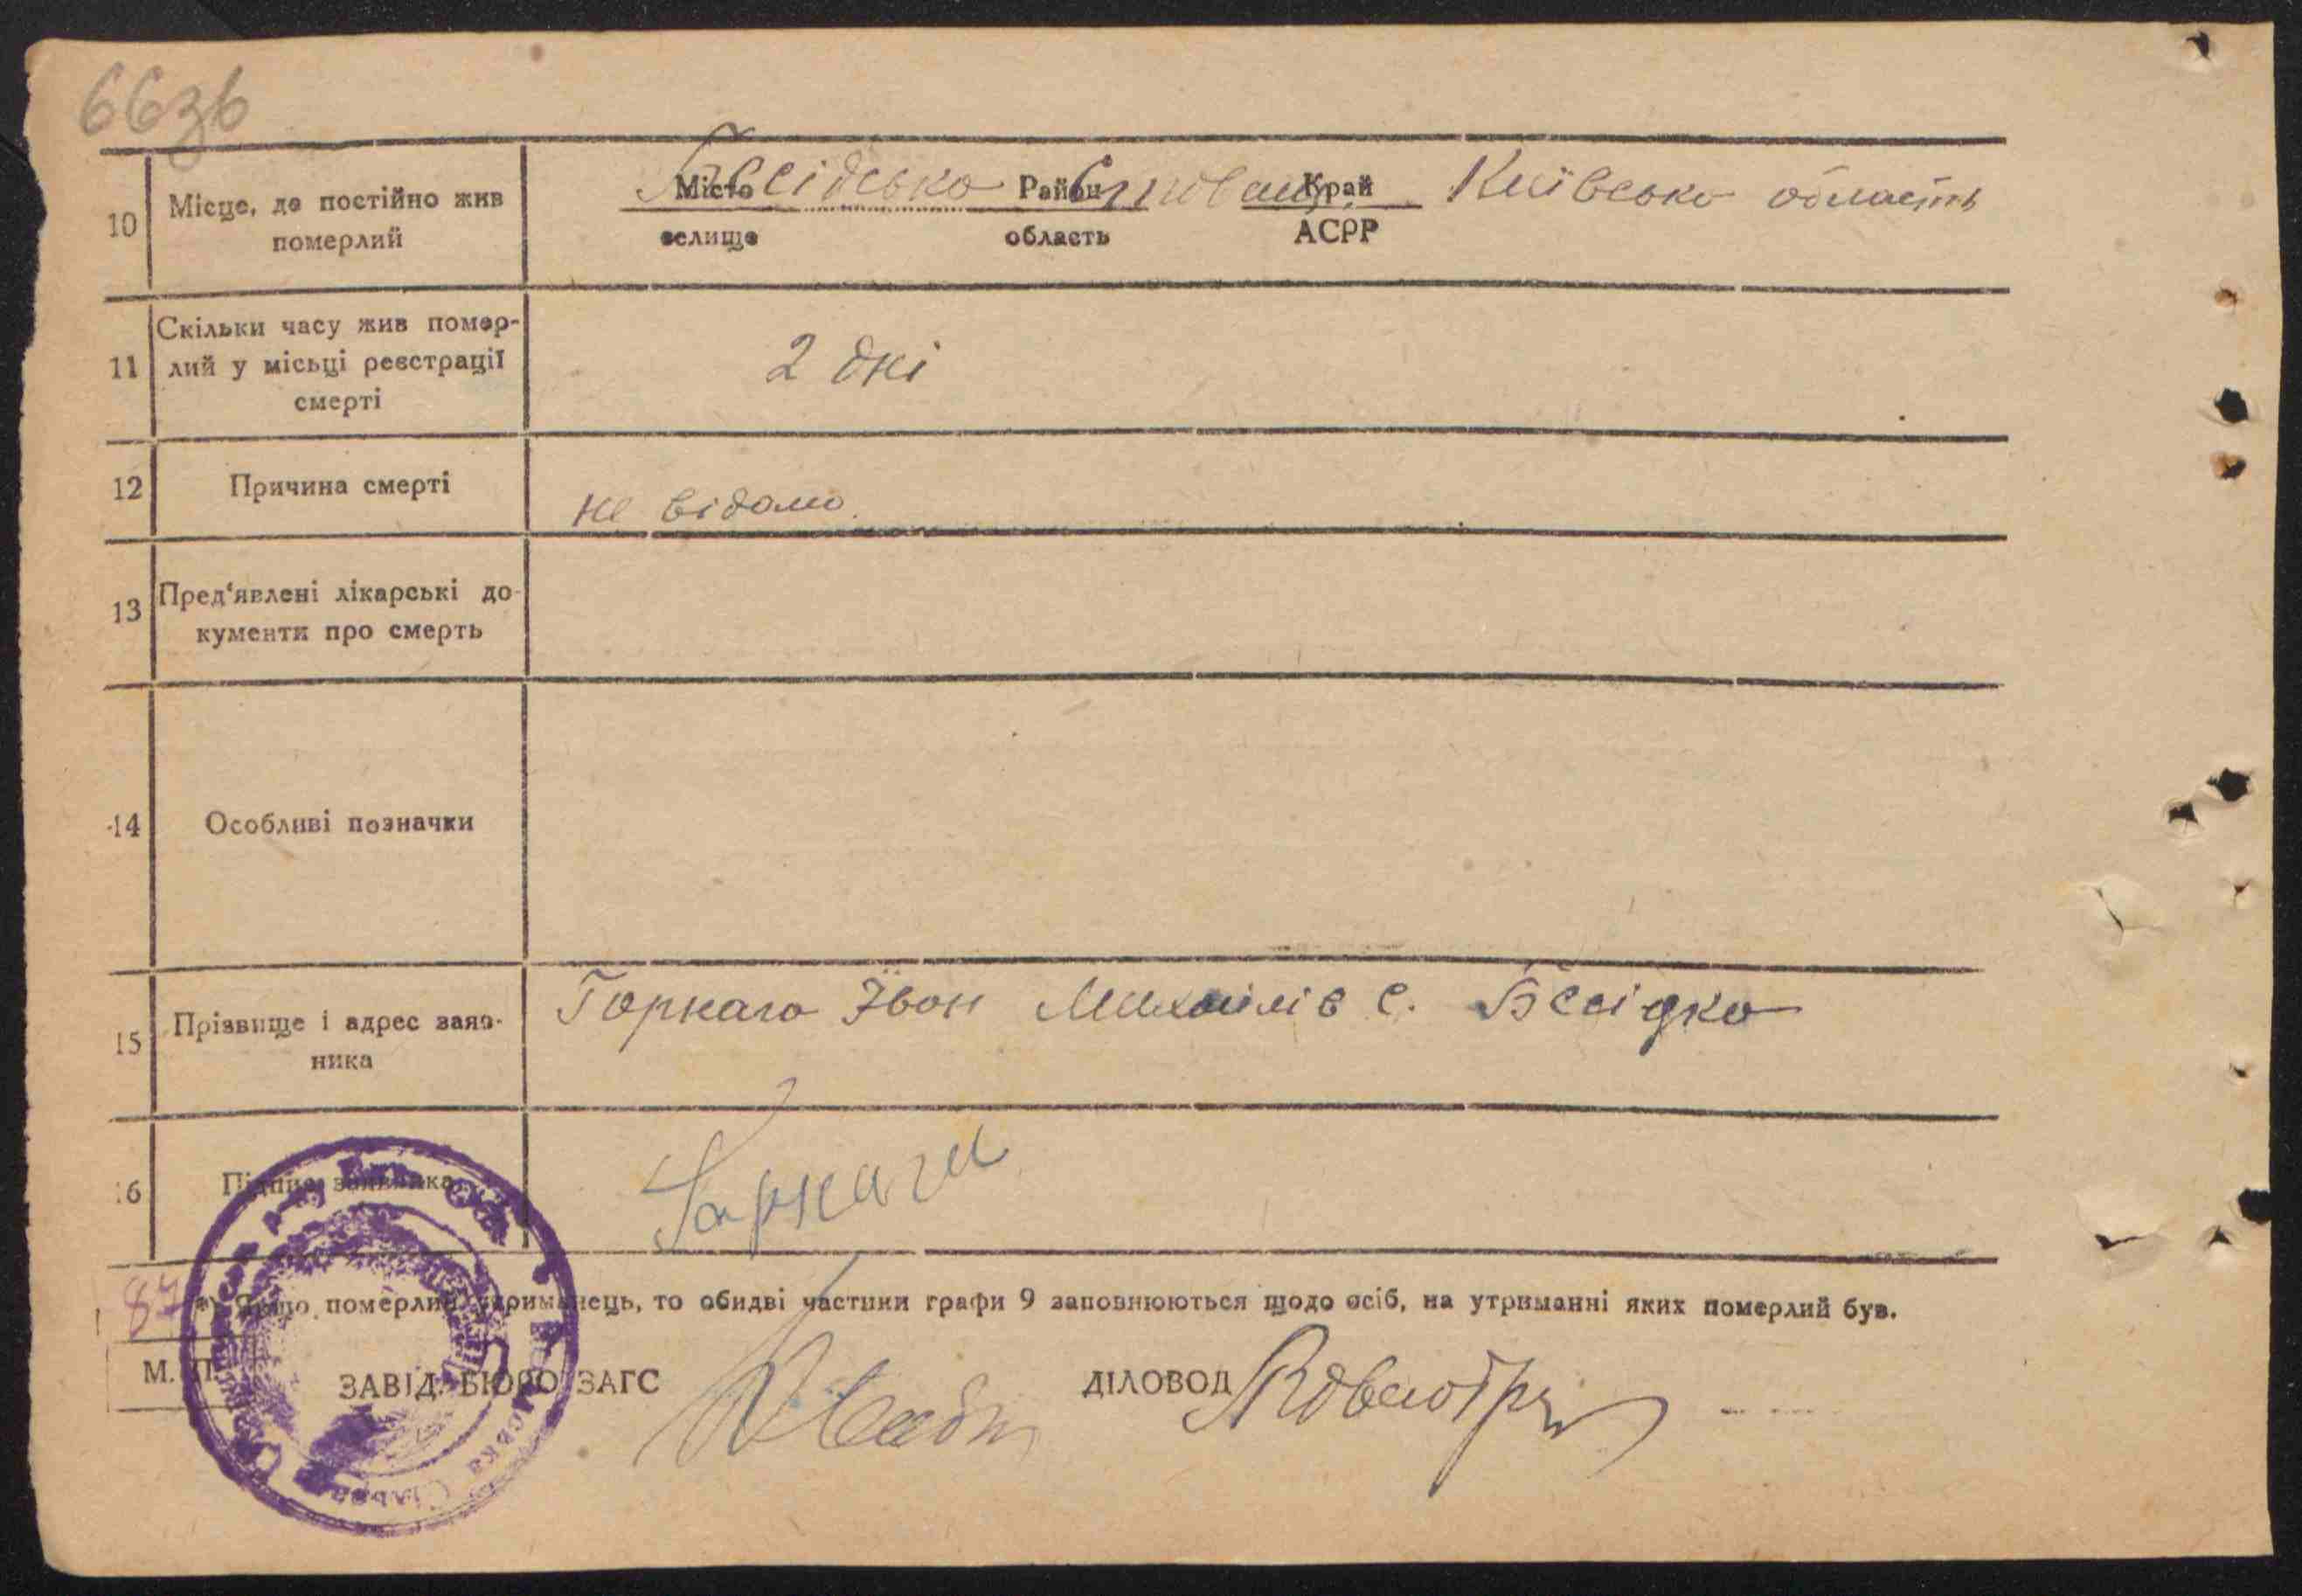 66зв
10 Місце, де постійно жив померлий
Місто Район Край Київсько область
селище область АСРР
11 Скільки часу жив помер-
лий у місьці реєстрації
смерті
2 дні
12 Причина смерті
не відомо.
13 Пред'явлені лікарські до-
кументи про смерть
14 Особливі позначки
15 Прізвище і адрес заяв-
ника
Горкаго Іван Михайлів с. Бесідко
16 Підпис заявника
87
*) Якщо померлий утриманець, то обидві частини графи 9 заповнюються щодо осіб, на утриманні яких померлий був.
М. П.
ЗАВІД. БЮРО ЗАГС
ДІЛОВОД